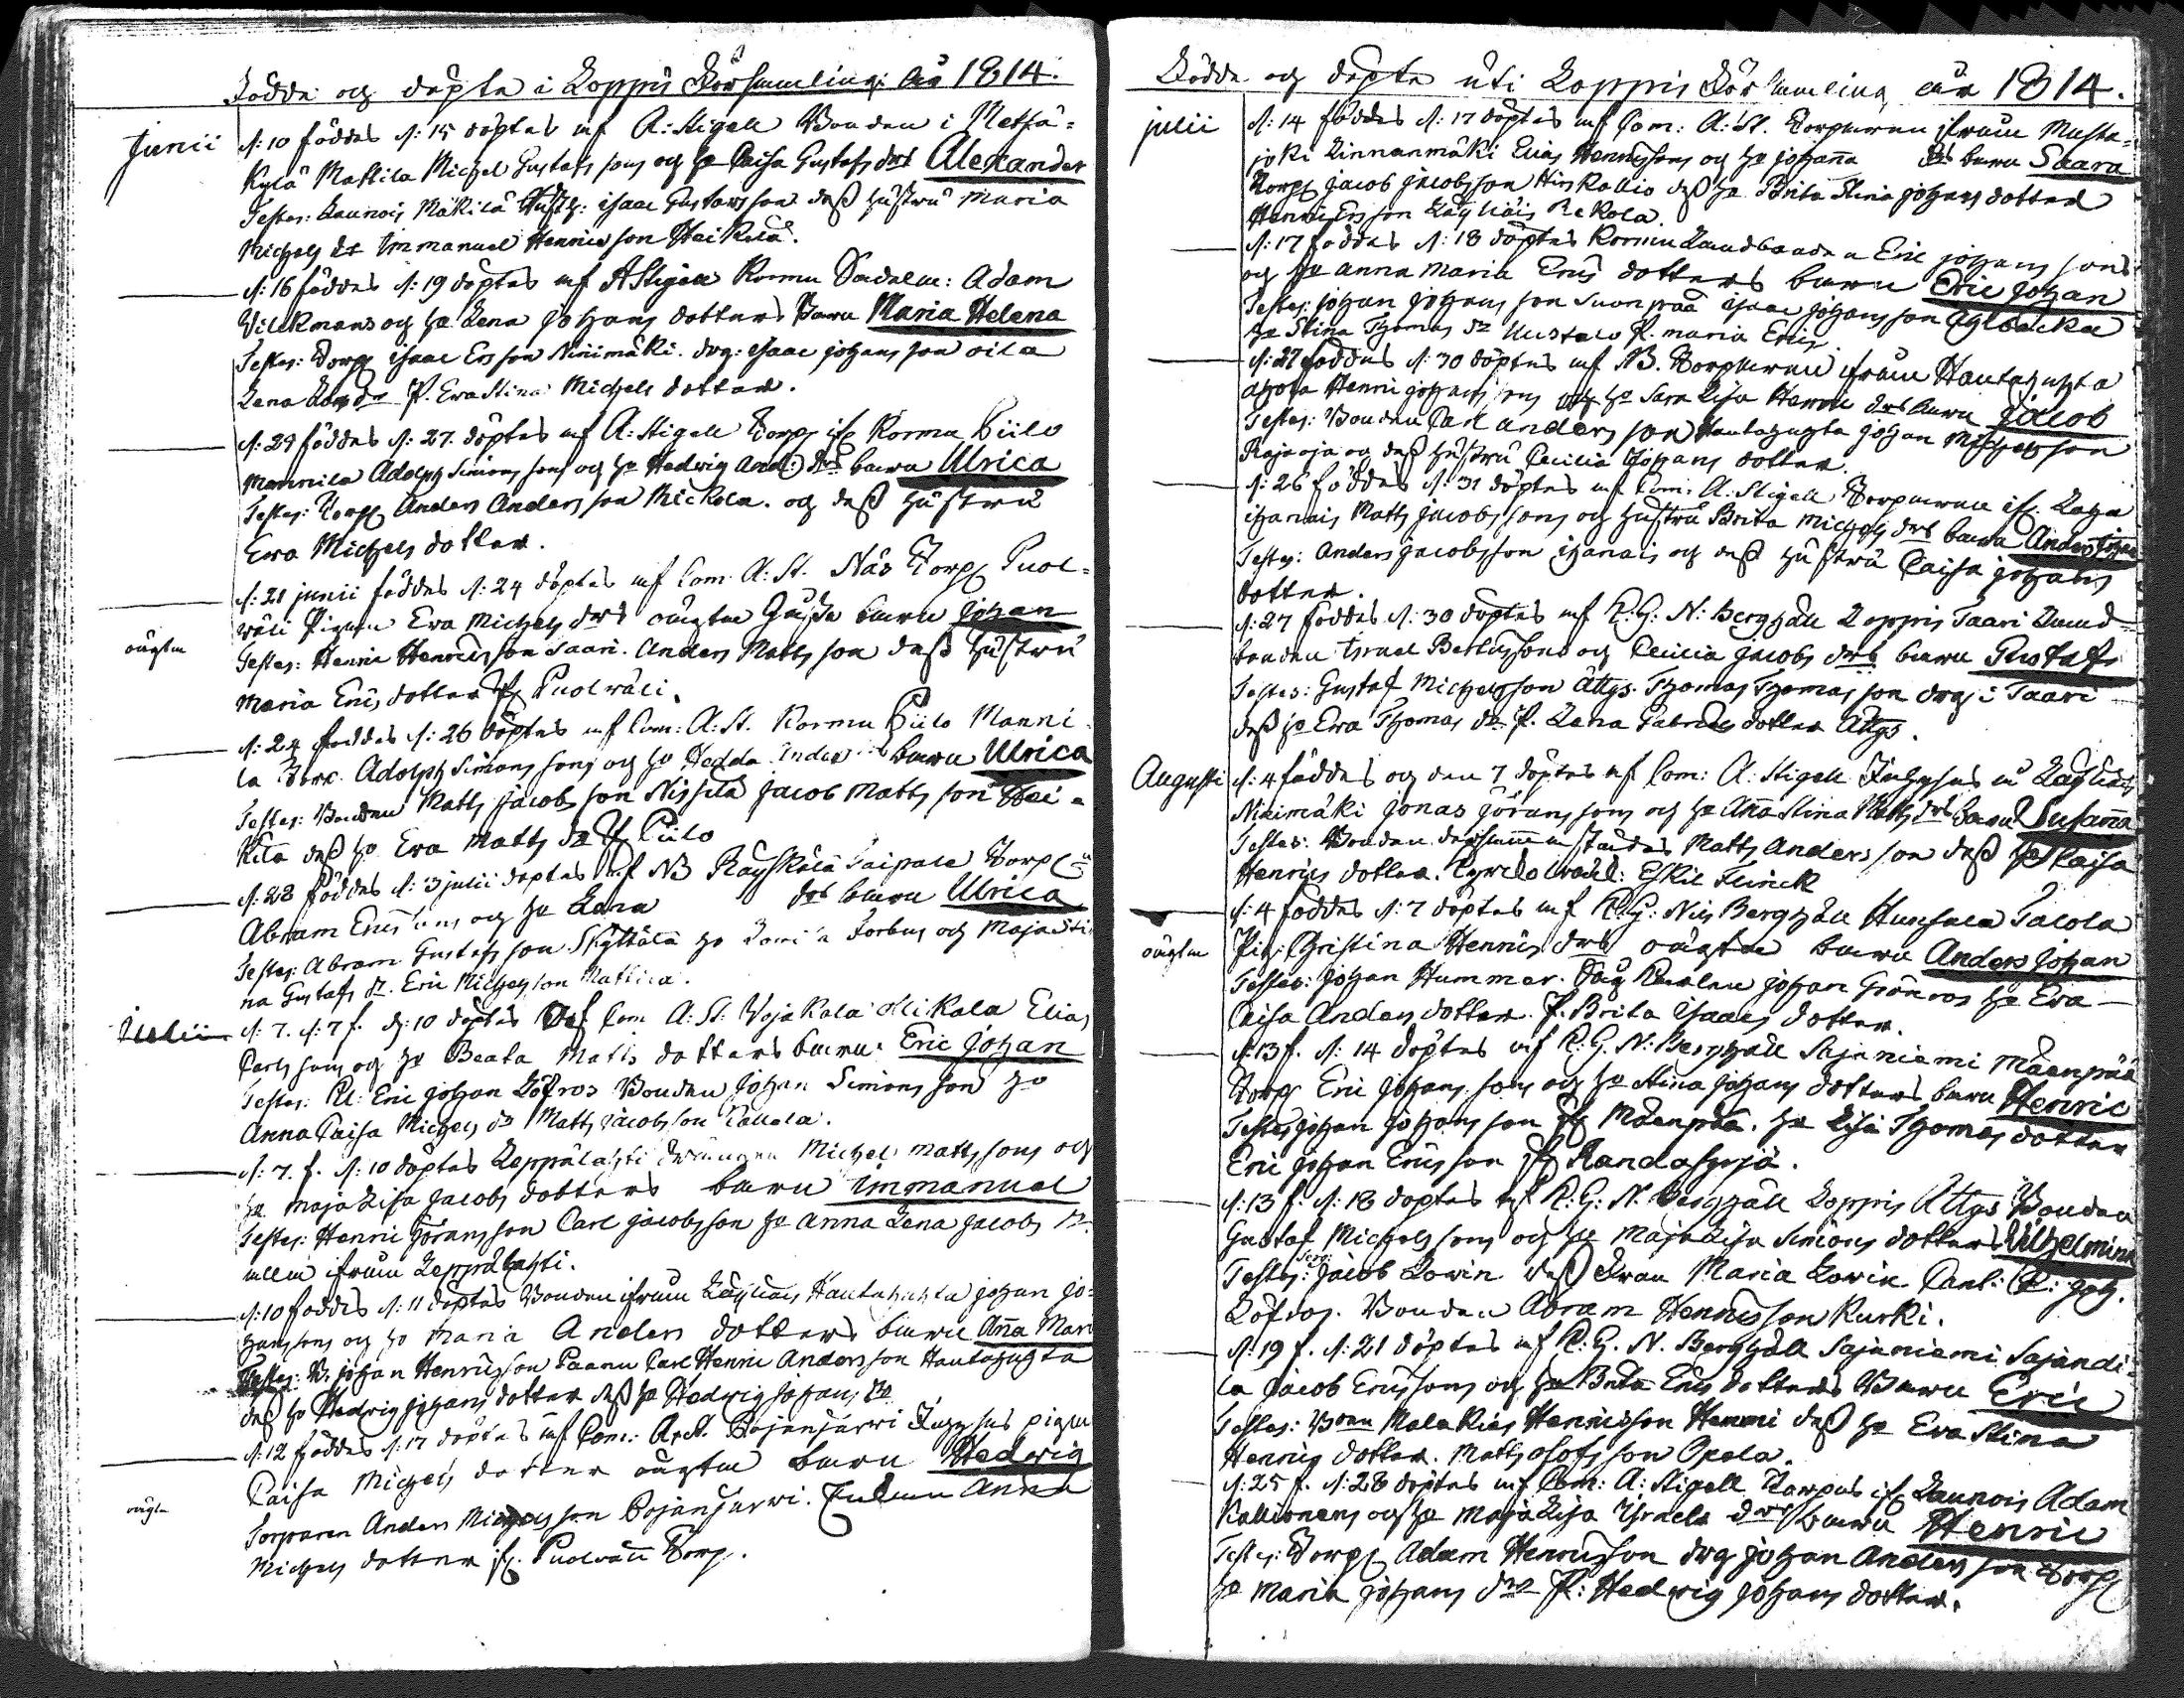 Födde og döpte i Loppis Församling: år 1814.
Junii d: 10 föddes d: 15 döptes af A: Stigell Bonden i Metsä=
kylä Mattila Michel Gustafs sons og h: Caisa Gustafs drs Alexander
Testes: Launois Mäkilä Isaac Gustavsson dess hustru Maria
Michels dr Immanuel Henricsson Heikilä.
d: 16 föddes d: 19 döptes af A Stigell Kormu Adam
Villkmans og h: Lena Johans dotters barn Maria Helena
Testes: Torp: Isaac Ersson Niinimäki. drg: Isaac Johans son oila
Lena dr P. Eva Stina Michels dotter.
d: 29 föddes d: 27. döptes af A: Stigell Torp: if: Kormu Piilo
Mannila Adolph Simons sons og h: Hedwig And: drs barn Ulrica
Testes: Torp: Anders Anders son Mickola. og dess hustru
Ewa Michels dotter.
d: 21 junii föddes d: 24 döptes af Com: A: St. Näs Torp: Puol=
wäli Pigan Ewa Michels drs oägta barn Johan
oägta Testes: Henric Henricsson Saari. Anders Matts son dess hustru
Maria Erics dotter if: Puolwäli.
d: 24 föddes d: 26 döptes af Com: A: St. Kormu Piilo Manni=
la Torp: Adolph Simons sons og h: Hedda Anders drs barn Ulrica
Testes: Bonden Matts Jacobs son Nissilä Jacob Matts son Hei=
kilä dess h: Ewa Matts dr if: Piilo
d: 28 föddes d: 3 julii döptes af NB Räyskälä Taipale Torp:
Abram Erics sons og h: Lena drs barn Ulrica
Testes: Abram Gustafs son Skyttälä h: Forbus og Maja Sti
na Gustafs dr. Eric Michels son Mattila.
Julii d: 7. d: 7 f. d: 10 döptes af Com A: St: Vojakala Ollikala Elias
Carls sons og h: Beata Matts dotters barn Eric Johan
Testes: Eric Johan Löfros Bonden Johan Simons son h:
Anna Caisa Michels dr Matts Jacobs son Pallola.
d: 7. f. d: 10 döptes Leppälahti drängen Michel Matts sons og
h: Maja Lisa Jacobs dotters barn Immanuel
Testes: Henric Göransson Carl Jacobsson h: Anna Lena Jacobs dr.
alla ifrån Leppälahti.
d: 10 föddes d: 11 döptes Bonden ifrån Läyliäis Hautahuhta Johan Jo=
hanssons og h: Maria Anders dotters barn Anna Mari
Testes: B. Johan Henricsson Paanu Carl Henric Andersson Hautahuhta
dess h: Hedwig Johans dotter dess h: Hedwig Johans dr
d: 12 föddes d: 17 döptes af Com: A: St. Pojanjärwi Inhyses pigan
Caisa Michels dotter oägta barn Hedwig
oägta Torparen Anders Michels son Pojanjärwi. Enkan Anna
Michels dotter if: Puolväli Torp.

Födde og döpte uti Loppis Församling år 1814.
julii d: 14 föddes d: 17 döptes af Com: A: St. Torparen ifrån Musta=
joki Linnanmäki Elias Henricssons og h: Johanna drs barn Saara
Torp: Jacob Jacobsson Hirskallio dess h: Brita Stina Johans dotter
Henric Ersson Läyliäis Rekola.
d: 17 föddes d: 18 döptes Kormu Landbonden Eric Johans sons
og h: Anna Maria Erics dotters barn Eric Johan
Testes: Johan Johans son Suonpää Isaac Johansson
h: Stina Thomas dr P. Maria Erics
d: 27 föddes d: 30 döptes af NB. Torparen ifrån Hautahuhta
Ahola Henric Johans sons og h: Sara Lisa Henric drs barn Jacob
Testes: Bonden Carl Anders son Hautahuhta Johan Michels son
Rajaoja og dess hustru Cecilia Johans dotter.
d: 26 föddes d: 31 döptes af Com: A: Stigell Torparen if:
Matts Jacobs sons og hustru Brita Michels drs barn Anders Johan
Testes: Anders Jacobsson og dess hustru Caisa Johans
dotter.
d: 27 föddes d: 30 döptes af K: G: N: Berghäll Loppis Saari Land=
bonden Israel Bertilssons og Cecilia Jacobs drs barn Gustaf
Testes: Gustaf Michelsson Ättys. Thomas Thomas son drg i Saari
dess h: Ewa Thomas dr P. Lena Gabriels dotter Ättys.
Augusti d: 4 föddes og den 7 döptes af Com: A: Stigell Inhyses i Läyliäis
Niinimäki Jonas Görans sons og h: Anna Stina Matts drs barn Susanna
Testes: Bonden dersammastädes Matts Anders son dess h: Caisa
Henrics dotter. Eskil Flinck
d: 4 föddes d: 7 döptes af K: G: Nils Berghäll Hunsala Talola
oägta Pig: Christina Henrics drs oägta barn Anders Johan
Testes: Johan Hummer. Johan Grönros h: Eva
Caisa Anders dotter. P. Brita Isaacs dotter.
d: 13 f. d: 14 döptes af K: G. N: Berghäll Sajaniemi Mäenpää
Torp: Eric Johans sons og h: Stina Johans dotters barn Henric
Testes Johan Johans son if: Mäenpää. h: Lisa Thomas dotter
Eric Johan Ericsson if:
d: 13 f. d: 18 döptes af K: G: N. Berghäll Loppis Ättys Bonden
Gustaf Michels sons og h: Maja Lisa Simons dotters Wilhelmina
Testes: Serg: Jacob Lowin dess Frau Maria Lowin. Cant: E: Joh.
Löfros. Bonden Abram Henricsson Kurki.
d: 19 f. d: 21 döptes af K: G. N. Berghäll Sajaniemi Sajandi=
la Jacob Ericssons og h: Brita Erics dotters Barn Eric
Testes: Bon Malakias Henricsson Hemmi dess h: Ewa Stina
Henrics dotter. Matts Olofs son Opola.
d: 25 f. d: 28 döptes af Com: A: Stigell Torpus if: Launois Adam
Kallionens og h: Maja Lisa Israels drs barn Henric
Testes: Torp: Adam Henricsson drg Johan Anders son Torp:
h: Maria Johans drs P: Hedwig Johans dotter.